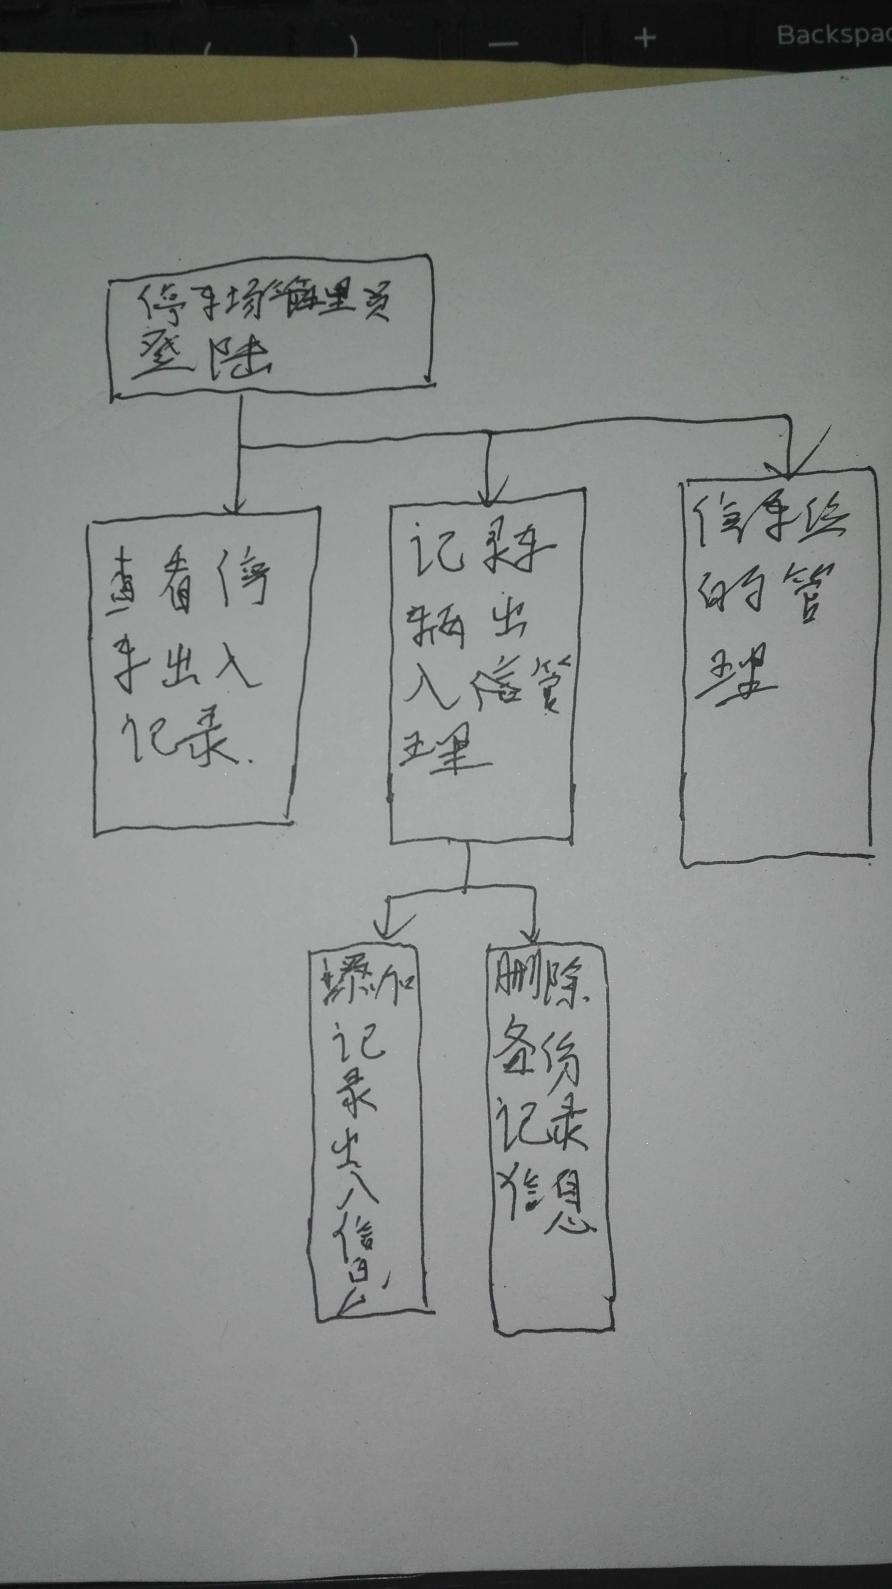 ( ) — + Backspac
停车场管理员
登陆
查看停
车出入
记录.
记录车
辆出
入信管
理
停车位
的管
理
添加
记
录
出
入
信
息
删除
备份
记录
信息